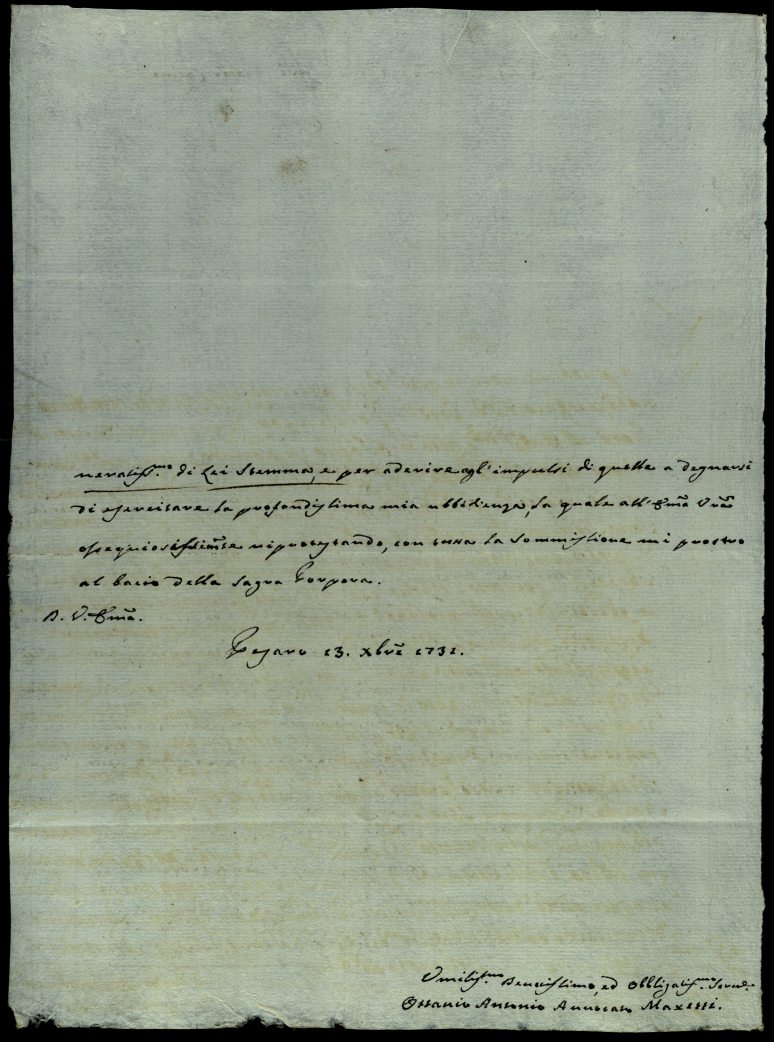 neratiss.mo di Lei Stemma, e per aderire agl'impulsi di quelle a degnarsi
di esercitare la profondissima mia ubbidienza, la quale all'Em̃a Vr̃a
ossequiosissimam̃te riprotestando, con tutta la sommissione mi prostro
al bacio della Sagra Porpora.
D. V. Em̃a.
Pesaro 13. Xbrẽ 1731.
Umiliss.mo Devotissimo, ed Obbligatiss.mo Serv.e
Ottavio Antonio Avvocato